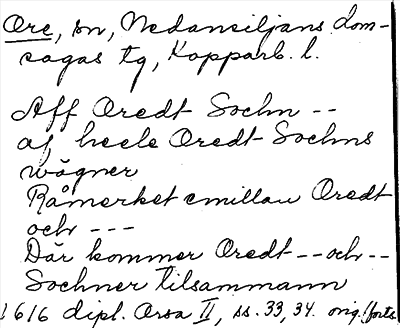 Ore, sn, Nedansiljans dom-
sagas tg, Kopparb. l.
Aff Oredt Sochn --
af heele Oredt Sochns
wägner
Råmerket emillan Oredt
och ---
Där kommer Oredt -- och --
Sochner tilsammann
1616 dipl. Orsa II, ss. 33, 34. orig. (forts.